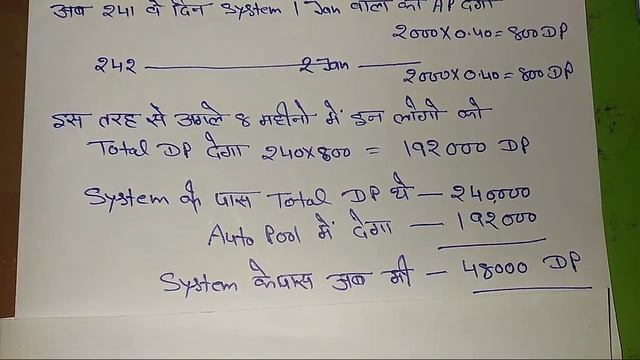 अब 241 वे दिन System 1 Jan वालो को AP देगा
2000 X 0.40 = 800 DP
242 ——— 2 Jan ———
2000 X 0.40 = 800 DP
इस तरह से अगले 8 महीनो में इन लोगो को
Total DP देगा 240 X 800 = 192000 DP
System के पास Total DP थे — 240000
Auto Pool में देगा — 192000
System के पास अब भी — 48000 DP